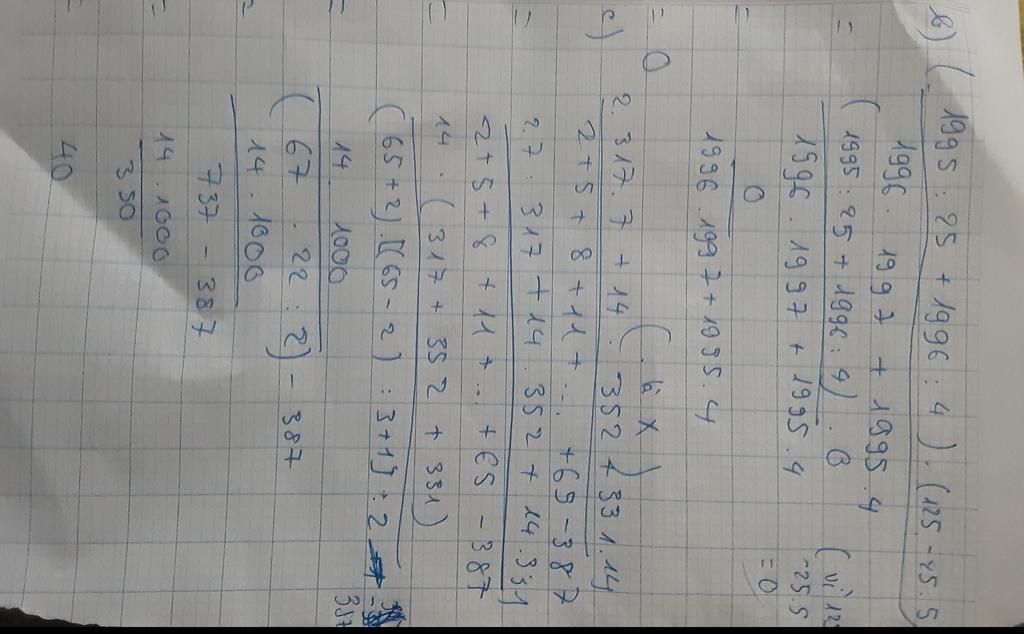 b) (1995 : 25 + 1996 : 4) . (125 - 25.5
1996 . 1997 + 1995.4
= (1995 : 25 + 1996 : 4) . 0 (vì 12
-25.5
1996 . 1997 + 1995.4 = 0
= 0
1996 . 1997 + 1995.4
= 0
c) 2.317.7 + 14. 352 + 331.14 (. là x)
2 + 5 + 8 + 11 + ... + 65 - 387
= 2.7 . 317 + 14 . 352 + 14.331
2 + 5 + 8 + 11 + ... + 65 - 387
= 14 . (317 + 352 + 331)
(65 + 2).[(65 - 2) : 3 + 1] : 2 - 387
= 14 . 1000
(67 . 22 : 2) - 387
= 14 . 1000
737 - 387
= 14 . 1000
350
= 40